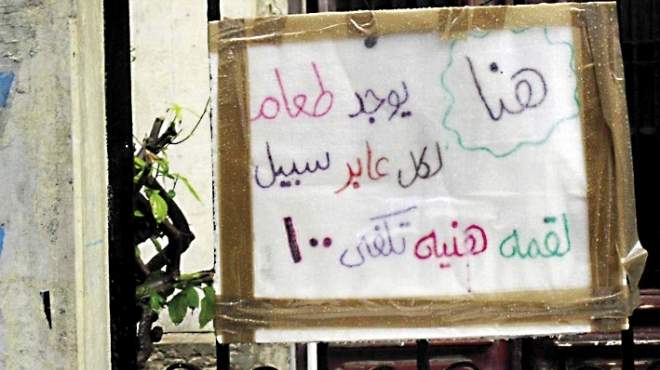 هنا يوجد طعام
لكل عابر سبيل
لقمه هنيه تكفي ١٠٠